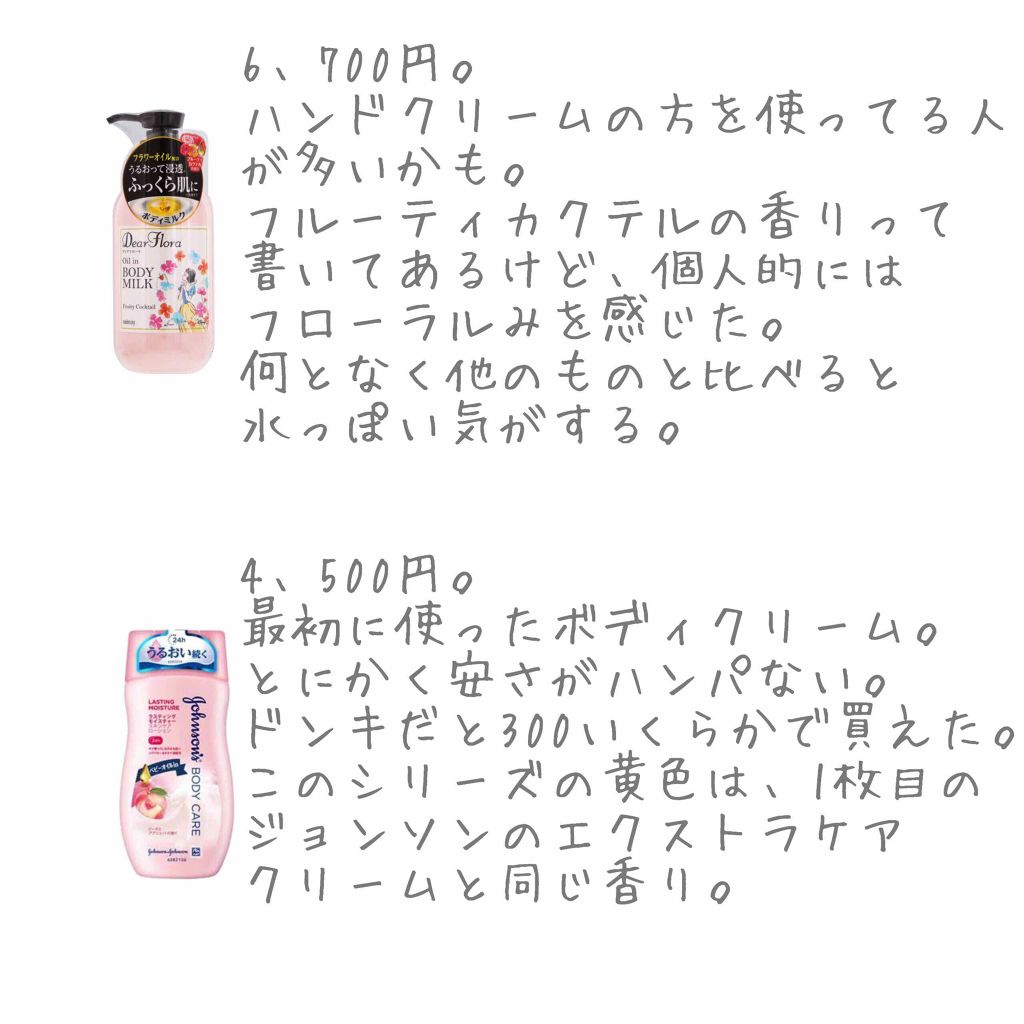 6、700円。
ハンドクリームの方を使ってる人
が多いかも。
フルーティカクテルの香りって
書いてあるけど、個人的には
フローラルみを感じた。
何となく他のものと比べると
水っぽい気がする。
フラワーオイル配合
うるおって浸透
ふっくら肌に
ボディミルク
Dear Flora
Oil in
BODY
MILK
Fruity Cocktail
4、500円。
最初に使ったボディクリーム。
とにかく安さがハンパない。
ドンキだと300いくらかで買えた。
このシリーズの黄色は、1枚目の
ジョンソンのエクストラケア
クリームと同じ香り。
24h
うるおい続く
LASTING
MOISTURE
ラスティング
モイスチャー
スキンケア
ローション
24h
ベビーオイルin
Johnson's
BODY CARE
Johnson & Johnson